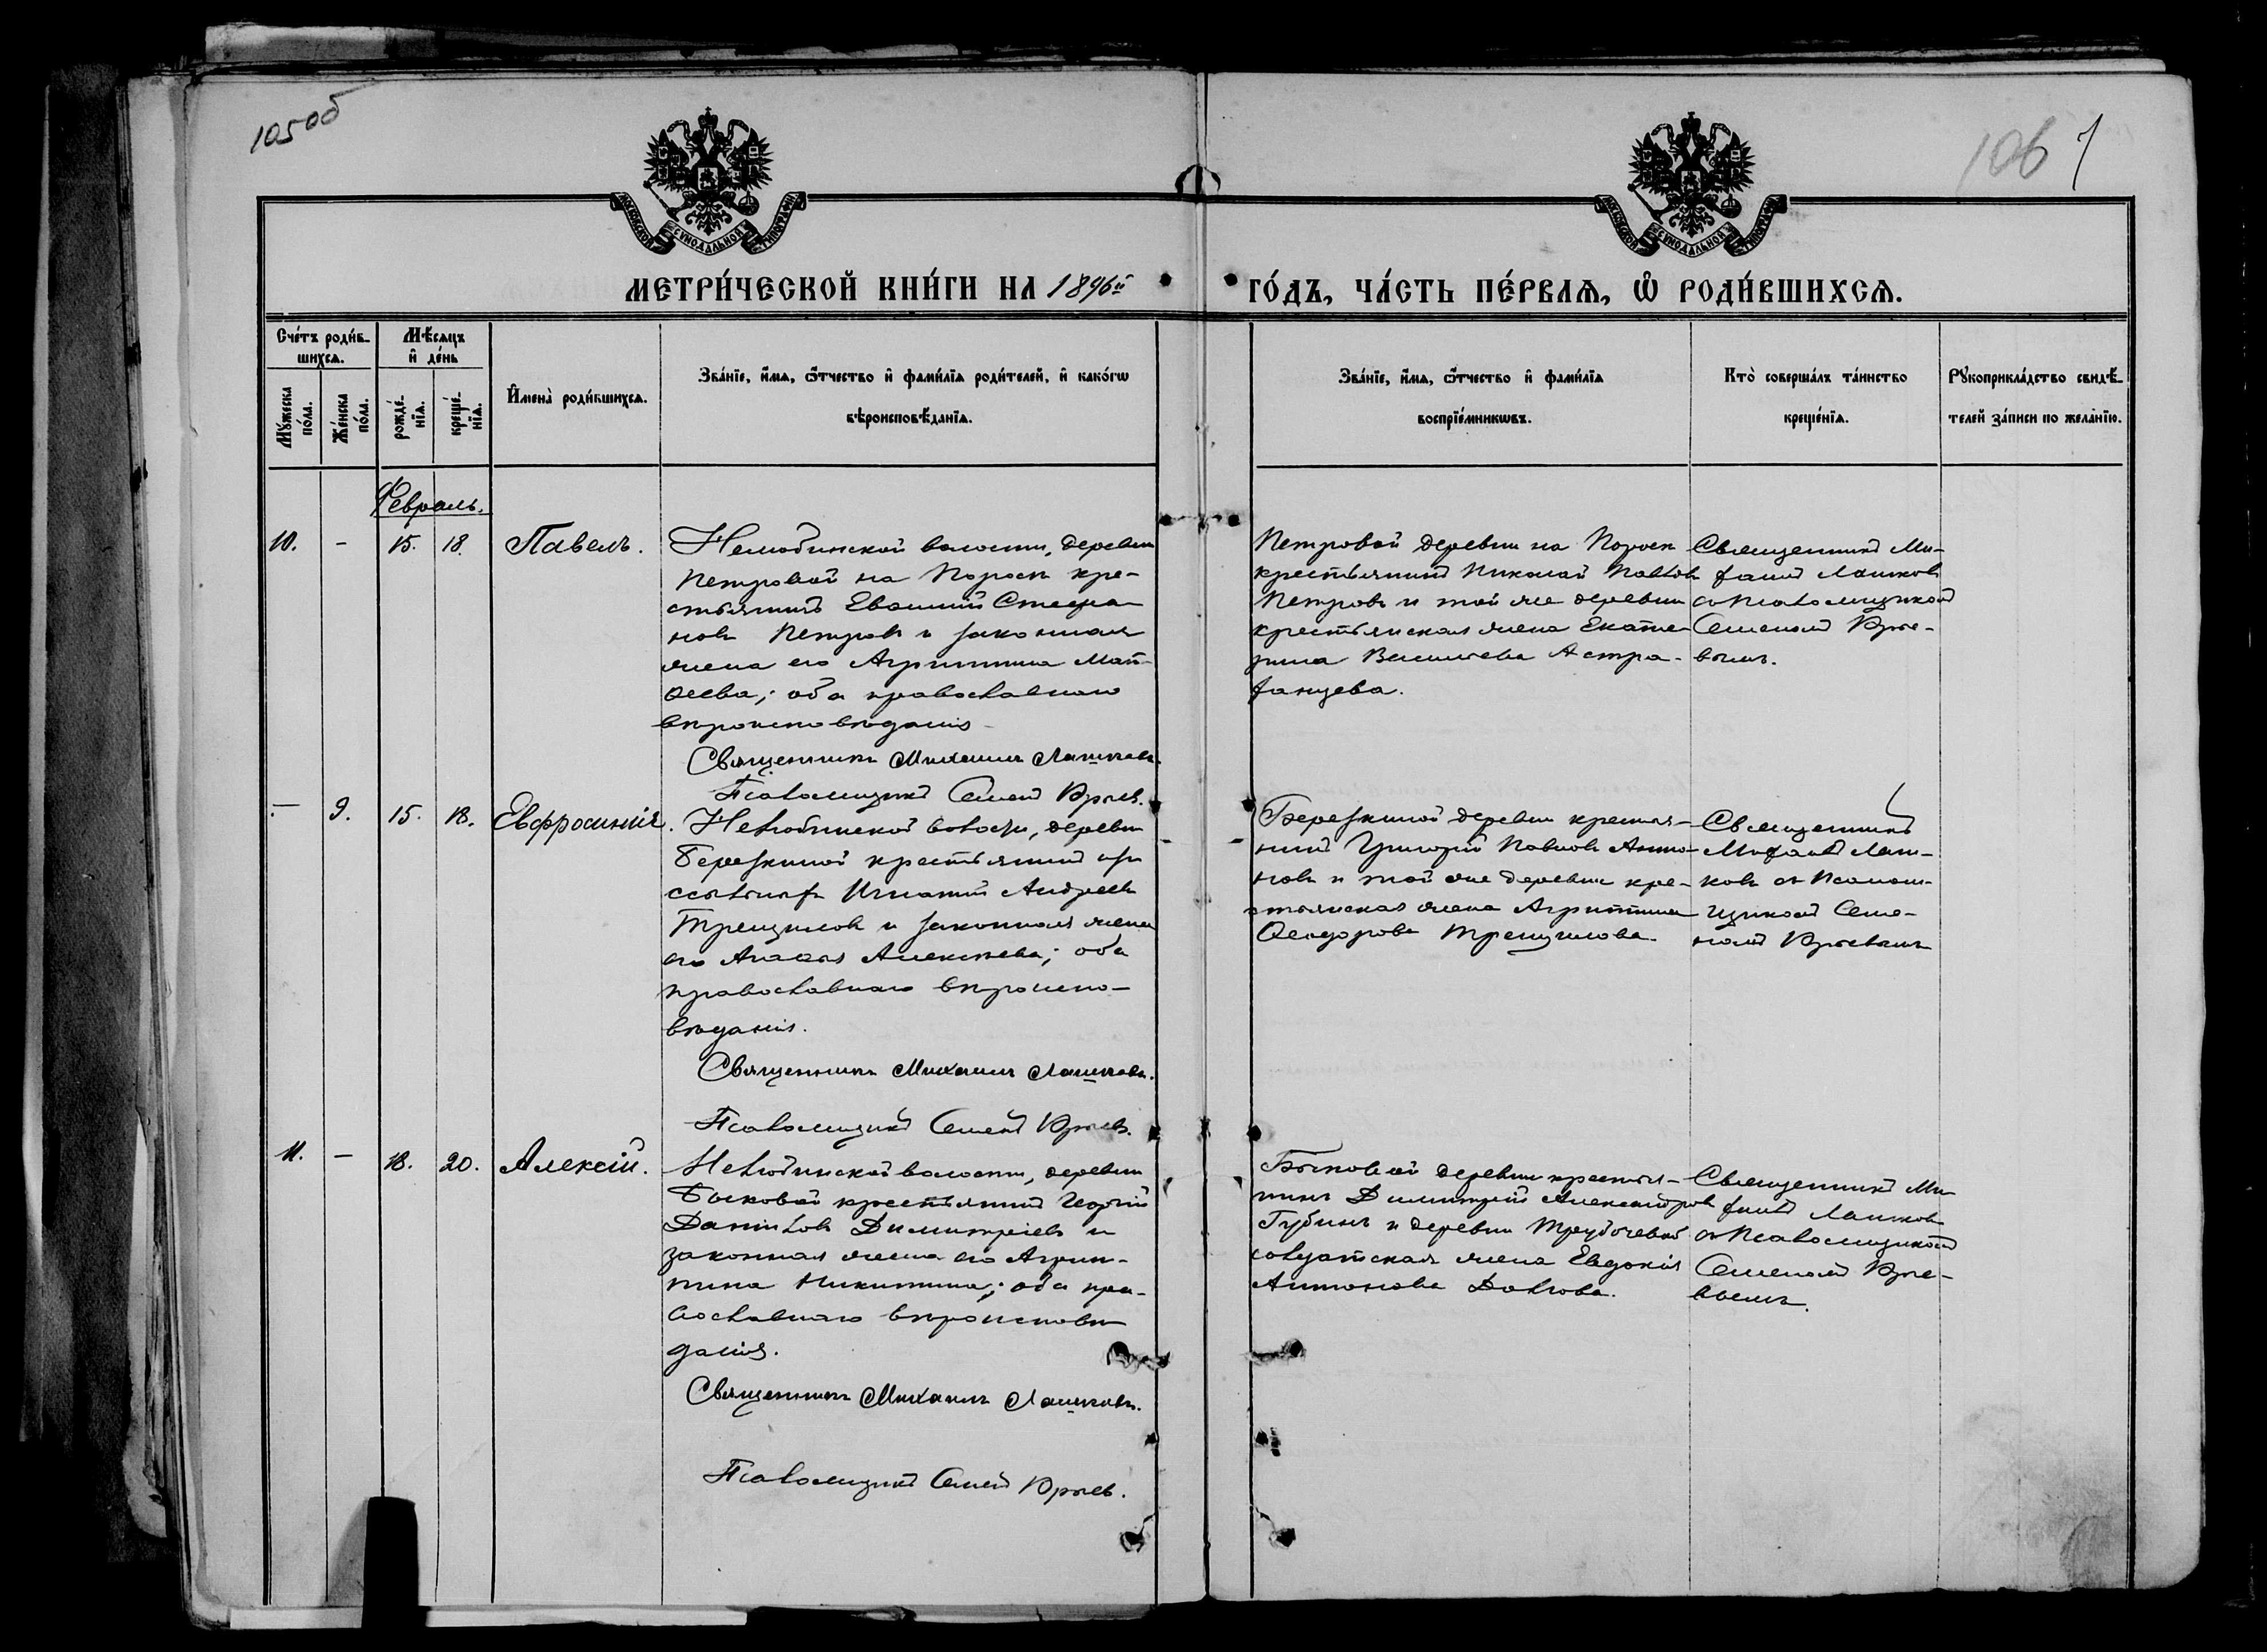 105об
106
МОСКОВСКОЙ СѴНОДАЛЬНОЙ ТИПОГРАФІИ
МОСКОВСКОЙ СѴНОДАЛЬНОЙ ТИПОГРАФІИ
МЕТРИ́ЧЕСКОЙ КНИ́ГИ НА 1896й
ГО́ДЪ, ЧА́СТЬ ПЕ́РВАѦ, Ѡ҆ РОДИ́ВШИХСѦ.
Сче́тъ роди́в-
шихсѧ.
Мѣ́сѧцъ
и҆ де́нь
Мꙋ́жеска по́ла.
Же́нска по́ла.
рожде́-
нїѧ.
креще́-
нїѧ.
И҆мена̀ роди́вшихсѧ.
Зва́нїе, и҆́мѧ, ѻ҆́тчество и҆ фами́лїѧ роди́телей, и҆ како́гѡ
вѣроисповѣ́данїѧ.
Зва́нїе, и҆́мѧ, ѻ҆́тчество и҆ фами́лїѧ
воспрїе́мникѡвъ.
Кто̀ соверша́лъ та́инство
креще́нїѧ.
Рꙋкоприкла́дство свидѣ́-
телей за́писи по жела́нїю.
Февраль.
10. - 15. 18. Павелъ.
Нелюбинской волости, деревни
Петровой на Поросѣ кре-
стьянинъ Евѳимій Стефа-
новъ Петровъ и законная
жена его Агриппина Мат-
ѳеева; оба православнаго
вѣроисповѣданія
Священникъ Михаилъ Лашковъ.
Псаломщикъ Семенъ
Петровой деревни на Поросѣ
крестьянинъ Николай Павловъ
Петровъ и той же деревни
крестьянская жена Екате-
рина Васильева Астра-
ханцева.
Священникъ Ми-
хаилъ Лашковъ
съ псаломщикомъ
Семеномъ
вымъ.
- 9. 15. 18. Евфросинія.
Нелюбинской волости, деревни
Березкиной крестьянинъ изъ
ссыльныхъ Игнатій Андреевъ
Трещиловъ и законная жена
его Анна Алексѣева; оба
православнаго вѣроиспо-
вѣданія.
Священникъ Михаилъ Лашковъ.
Псаломщикъ Семенъ
Березкиной деревни крестья-
нинъ Григорій Павловъ Анто-
новъ и той же деревни кре-
стьянская жена Агриппина
Ѳеодорова Трещилова.
Священникъ
Михаилъ Лаш-
ковъ съ Псалом-
щикомъ Семе-
номъ
11. - 18. 20. Алексій.
Нелюбинской волости, деревни
Быковой крестьянинъ Георгій
Даниловъ Димитріевъ и
законная жена его Агрип-
пина Никитина; оба пра-
вославнаго вѣроисповѣ
данія.
Священникъ Михаилъ Лашковъ.
Псаломщикъ Семенъ
Быковой деревни крестья-
нинъ Димитрій Александровъ
Губинъ и деревни Трубачевой
солдатская жена Евдокія
Антонова Долгова.
Священникъ Ми
хаилъ Лашковъ
съ Псаломщикомъ
Семеномъ
вымъ.